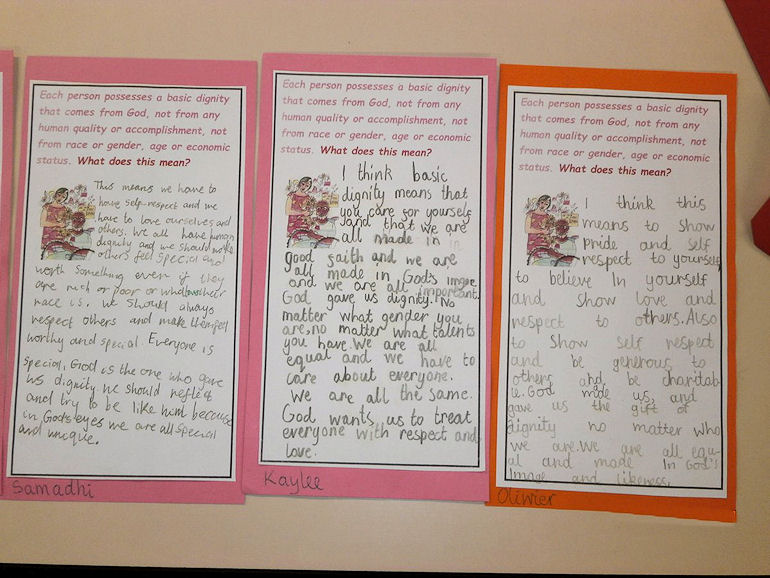 Each person possesses a basic dignity
that comes from God, not from any
human quality or accomplishment, not
from race or gender, age or economic
status. What does this mean?
This means we have to
have self-respect and we
have to love ourselves and
others. We all have human
dignity and we should make
others feel special and
worth something even if they
are rich or poor or whatever their
race is. We should always
respect others and make them feel
worthy and special. Everyone is
special, God is the one who gave
us dignity he should reflect
and try to be like him because
in God's eyes we are all special
and unique.
Samadhi
Each person possesses a basic dignity
that comes from God, not from any
human quality or accomplishment, not
from race or gender, age or economic
status. What does this mean?
I think basic
dignity means that
you care for yourself
and that we are
all made in
good faith and we are
all made in God's image
and we are all important.
God gave us dignity. No
matter what gender you
are, no matter what talents
you have. We are all
equal and we have to
care about everyone.
We are all the same.
God wants us to treat
everyone with respect and
love.
Kaylee
Each person possesses a basic dignity
that comes from God, not from any
human quality or accomplishment, not
from race or gender, age or economic
status. What does this mean?
I think this
means to show
pride and self
respect to yourself,
to believe in yourself
and show love and
respect to others. Also
to show self respect
and be generous to
others and be charitab
le. God made us, and
gave us the gift of
dignity no matter who
we are. We are all equ-
al and made in God's
image and likeness.
Oliwier